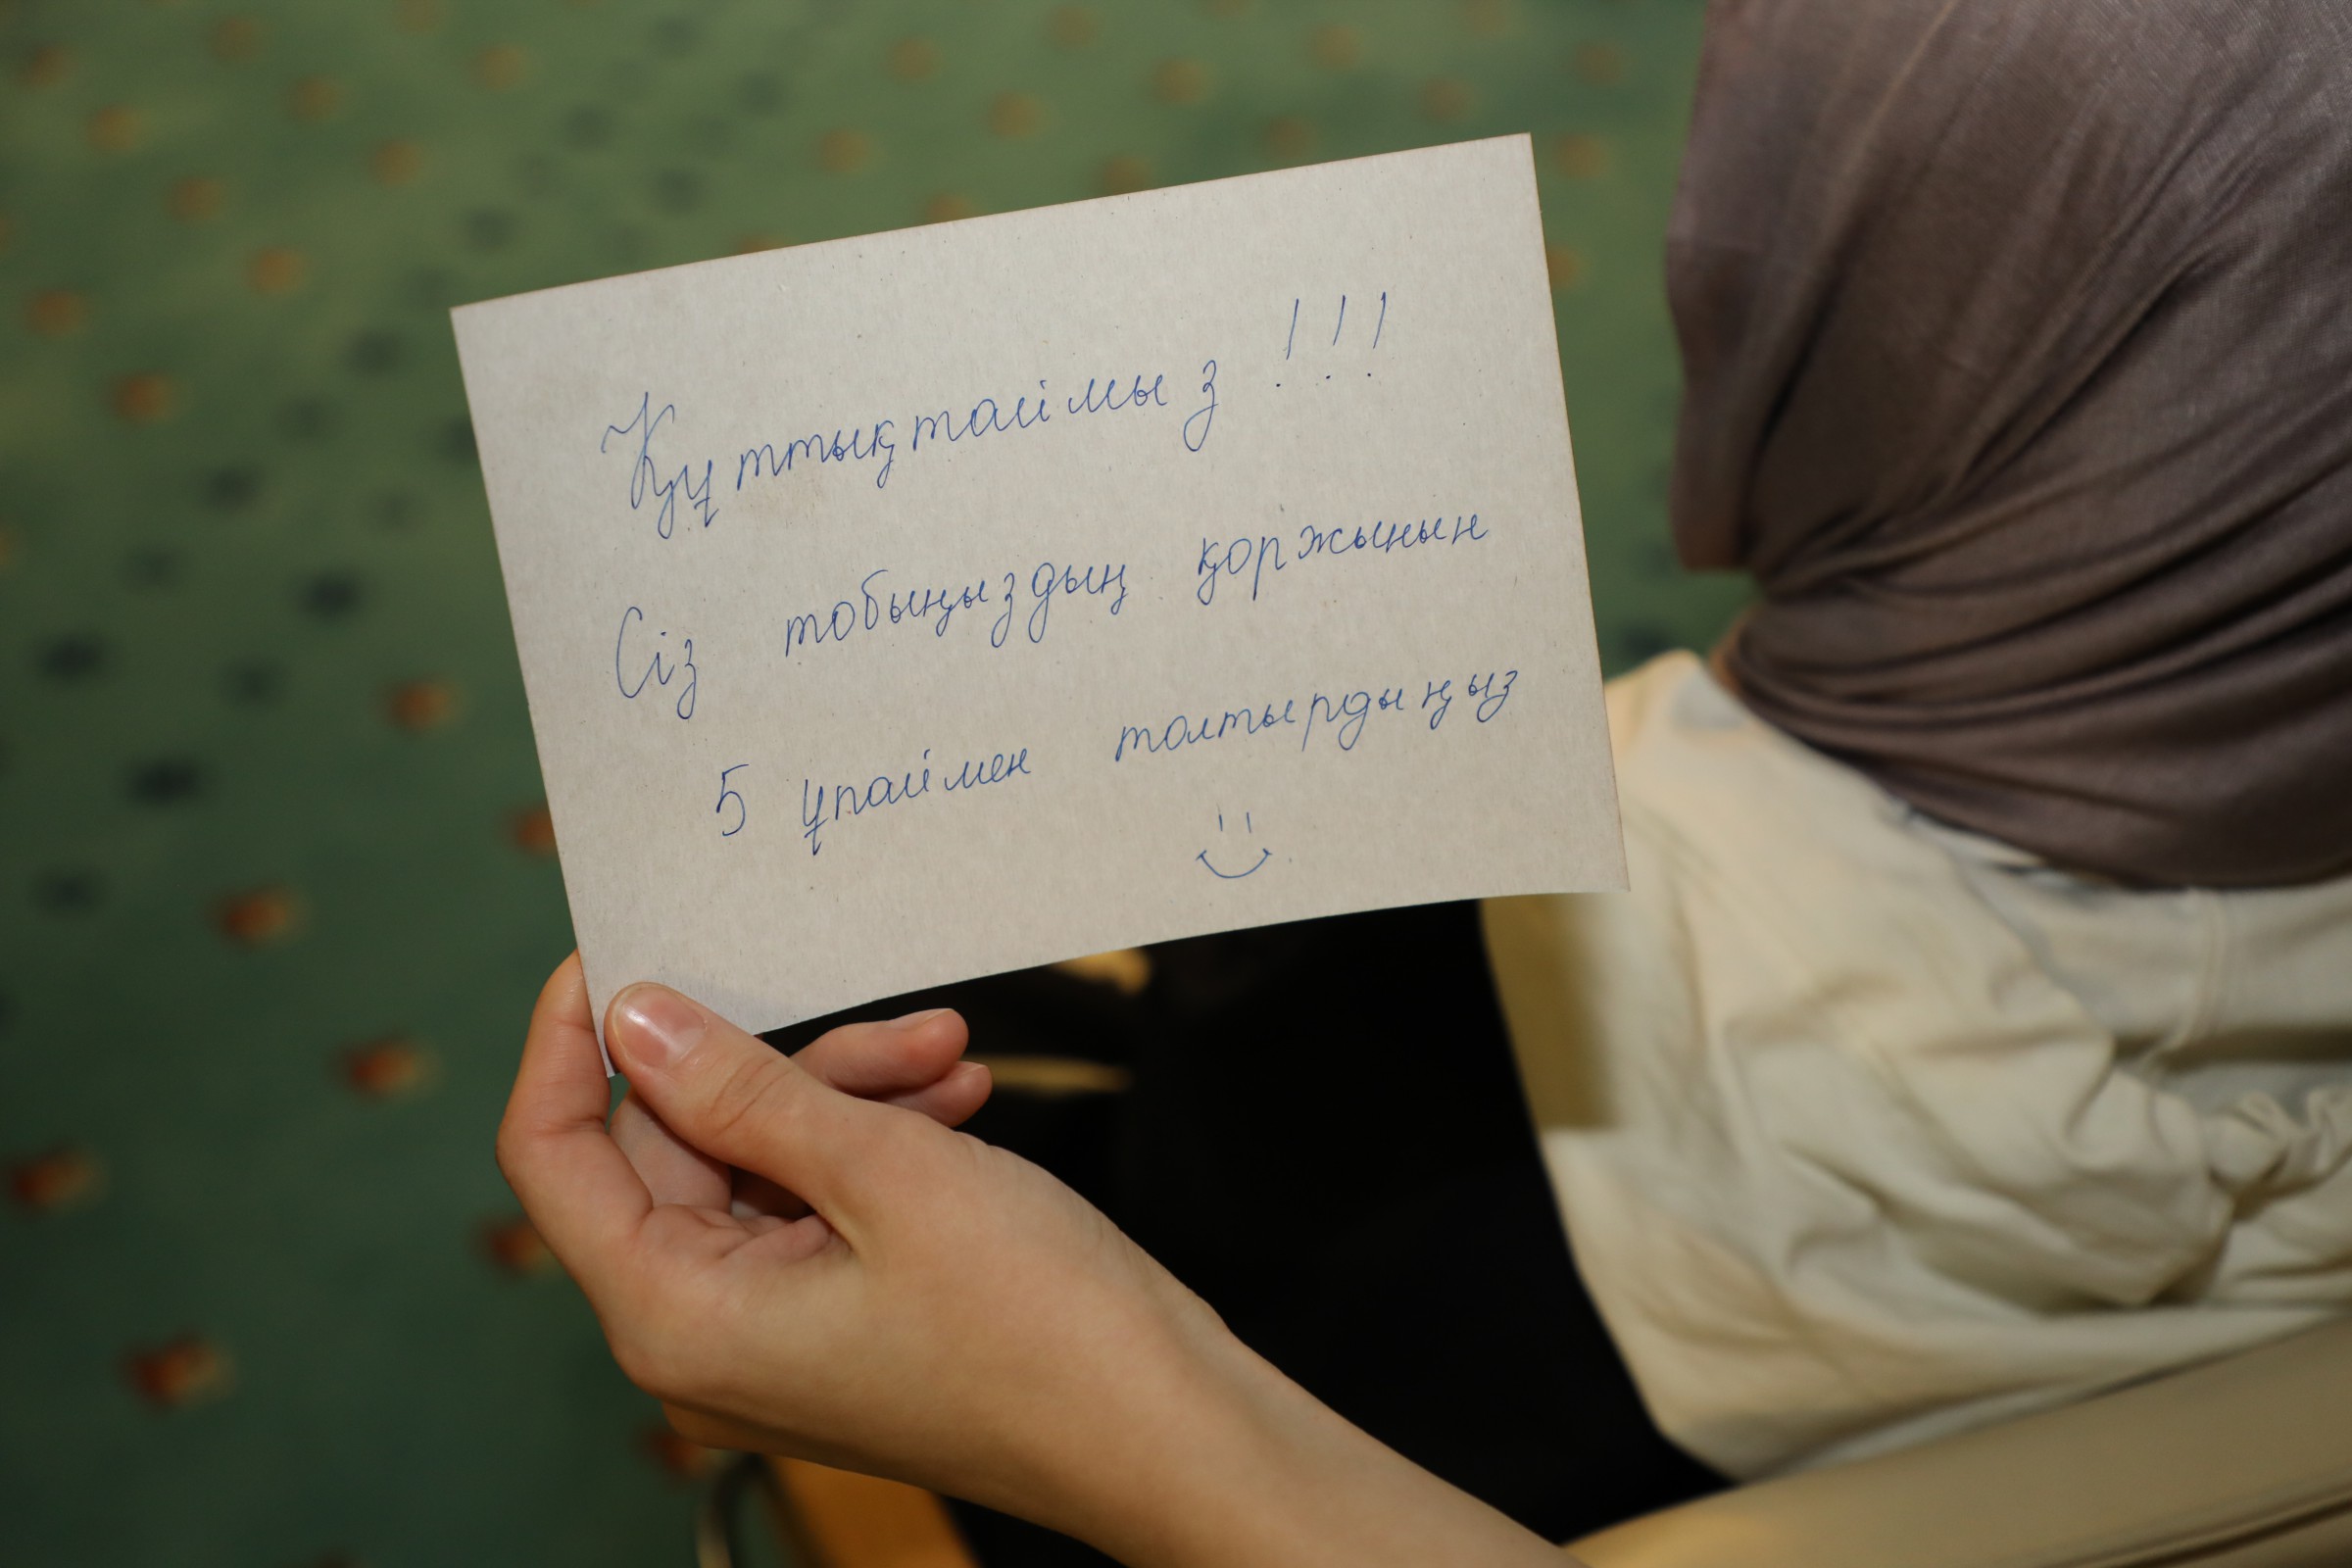 Құттықтаймыз !!!
Сіз тобыңыздың қоржынын
5 ұпаймен толтырдыңыз